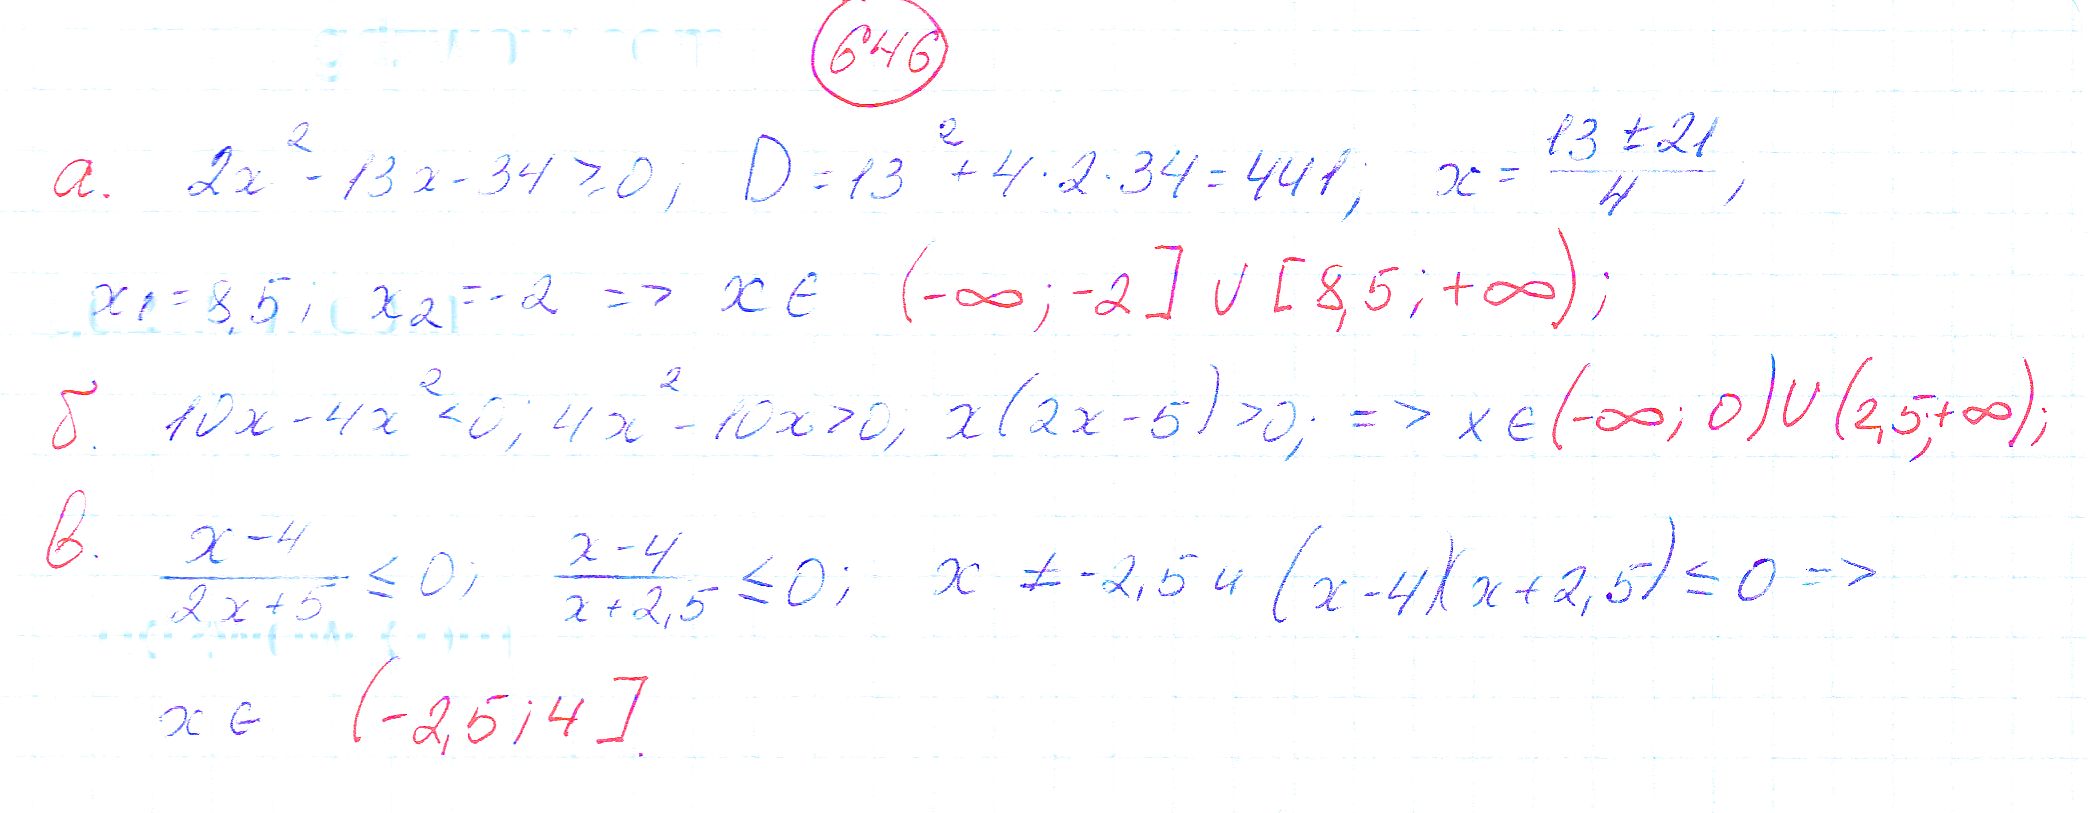 646
а. 2x² - 13x - 34 ≥ 0; D = 13² + 4·2·34 = 441; x = (13 ± 21)/4;
x₁ = 8,5; x₂ = -2 => x ∈ (-∞; -2] ∪ [8,5; +∞);
б. 10x - 4x² < 0; 4x² - 10x > 0; x(2x - 5) > 0; => x ∈ (-∞; 0) ∪ (2,5; +∞);
в. (x - 4)/(2x + 5) ≤ 0; (x - 4)/(x + 2,5) ≤ 0; x ≠ -2,5 и (x - 4)(x + 2,5) ≤ 0 =>
x ∈ (-2,5; 4].